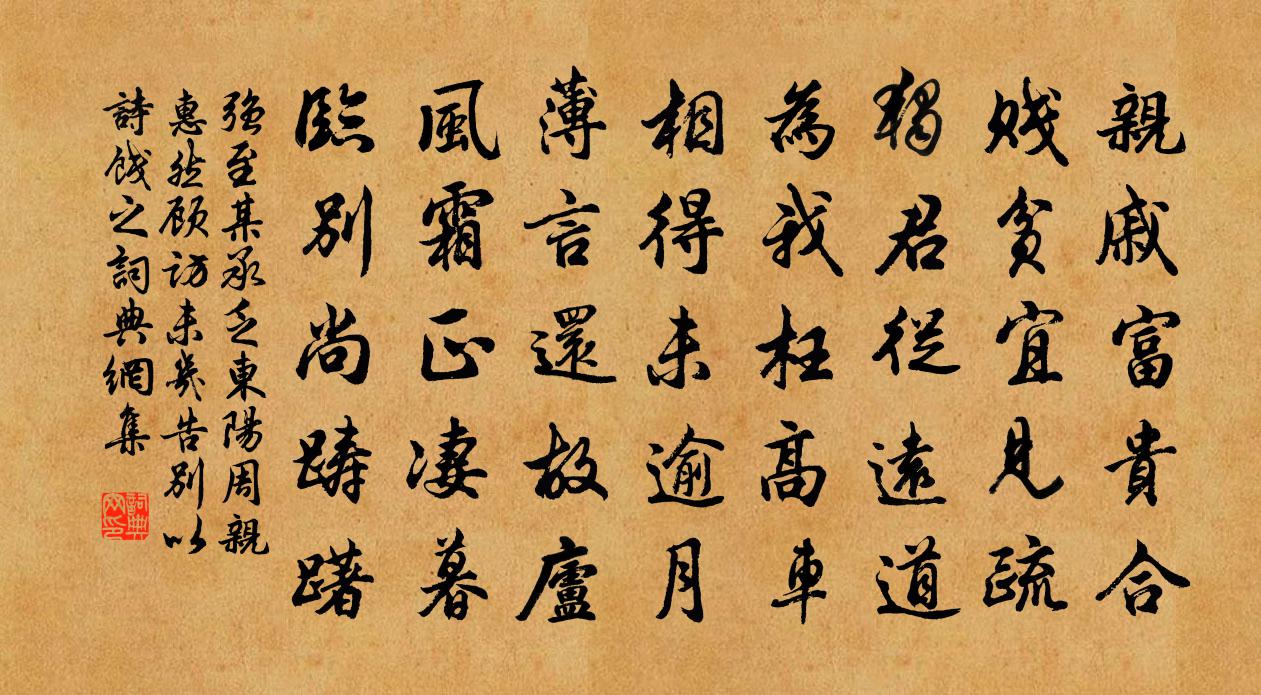 親戚富貴合
賤貧宜見疏
獨君從遠道
為我枉高車
相得未逾月
薄言還故廬
風霜正凄暮
臨別尚躊躇
强至某承乏東陽周親
惠然顧訪未幾告別以
詩餞之詞典網集
詞典网印